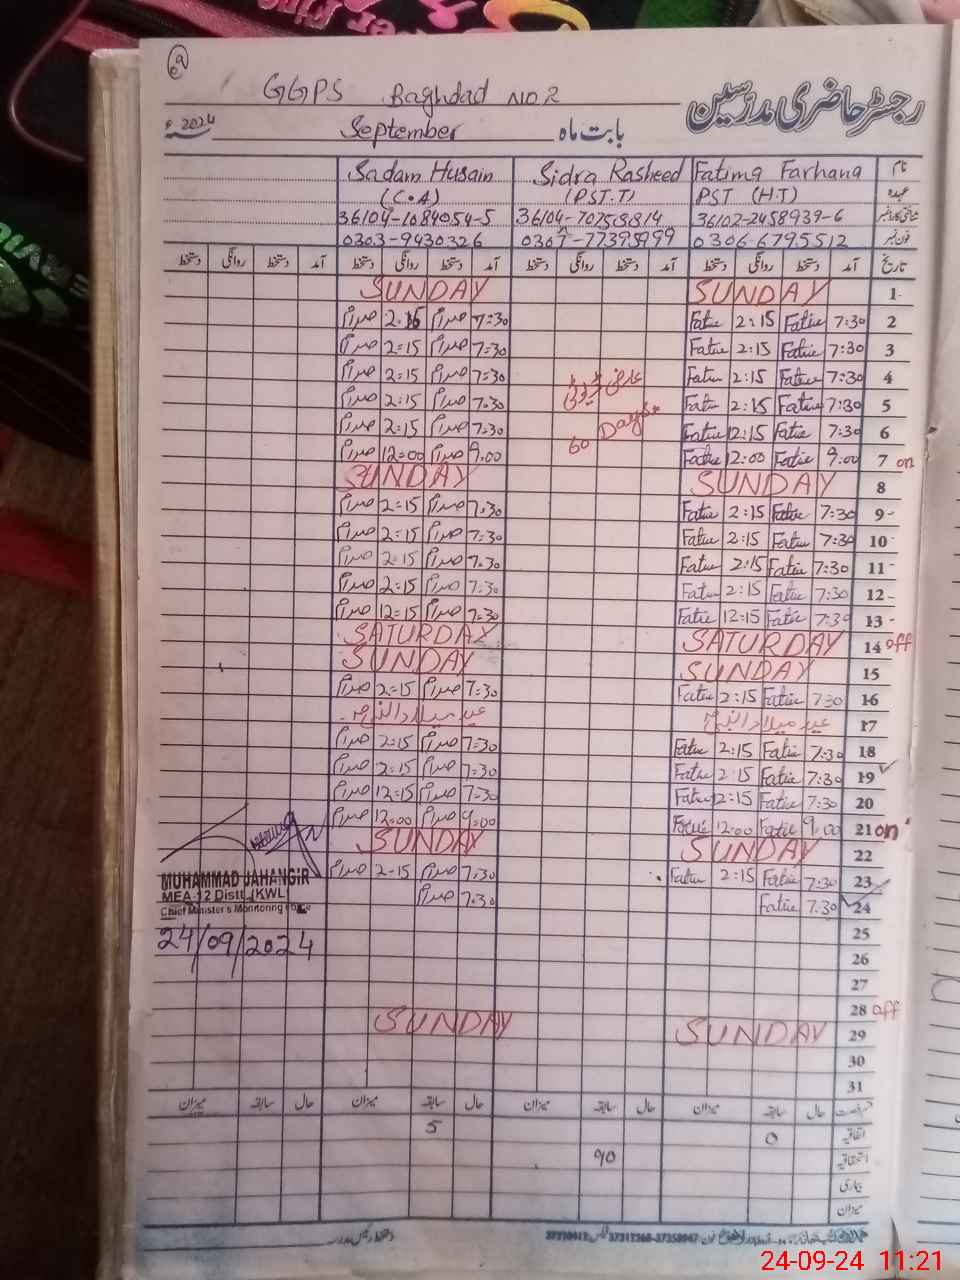 GGPS Baghdad NO.2
رجسٹر حاضری مدرسین
بابت ماہ September 2024ء
نام Fatima Farhana Sidra Rasheed Sadam Husain
عہدہ PST (H.T) (PST.T) (C.A)
36102-2458939-6 36104-7075881-4 36104-1084054-5
فون نمبر 0306-6795512 0307-77395999 0303-9430326
تاریخ آمد دستخط روانگی دستخط آمد دستخط روانگی دستخط آمد دستخط روانگی دستخط آمد دستخط روانگی دستخط
1 SUNDAY SUNDAY
2 7:30 Fatue 2:15 Fatue 7=30 صدام 2.15 صدام
3 7:30 Fatue 2:15 Fatue 7=30 صدام 2=15 صدام
4 7:30 Fatue 2:15 Fatue 7=30 صدام 2=15 صدام
5 7:30 Fatue 2:15 Fatue 7.30 صدام 2:15 صدام
عارضی ڈیوٹی
60 Days
6 7:30 Fatue 12:15 Fatue 7.30 صدام 2:15 صدام
7 on 9:00 Fatue 12:00 Fatue 9.00 صدام 12=00 صدام
8 SUNDAY SUNDAY
9 7:30 Fatue 2:15 Fatue 7.30 صدام 2=15 صدام
10 7:30 Fatue 2:15 Fatue 7=30 صدام 2=15 صدام
11 7:30 Fatue 2:15 Fatue 7.30 صدام 2:15 صدام
12 7:30 Fatue 2:15 Fatue 7=30 صدام 2=15 صدام
13 7:30 Fatue 12:15 Fatue 7=30 صدام 12=15 صدام
14 off SATURDAY SATURDAY
15 SUNDAY SUNDAY
16 7:30 Fatue 2:15 Fatue 7=30 صدام 2=15 صدام
17 عید میلاد النبیؐ عید میلاد النبیؐ
18 7:30 Fatue 2:15 Fatue 7=30 صدام 2=15 صدام
19 7:30 Fatue 2:15 Fatue 7=30 صدام 2=15 صدام
20 7:30 Fatue 2:15 Fatue 7=30 صدام 12=15 صدام
21 on 9:00 Fatue 12:00 Fatue 9:00 صدام 12:00 صدام
22 SUNDAY SUNDAY
23 7:30 Fatue 2:15 Fatue 7:30 صدام 2-15 صدام
24 7.30 Fatue 7.30 صدام
MUHAMMAD JAHANGIR
MEA-12 Distt.
Chief Minister's Monitoring Force
24/09/2024
25
26
27
28 off
29 SUNDAY SUNDAY
30
31
حال سابقہ میزان حال سابقہ میزان حال سابقہ میزان حال سابقہ میزان
اتفاقیہ 0 5
استحقاقیہ 90
بیماری
میزان
24-09-24 11:21